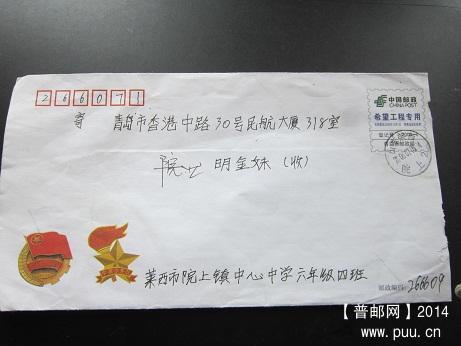 266071
中国邮政
CHINA POST
希望工程专用
寄 青岛市香港中路30号民航大厦318室
明金妹（收）
莱西市院上镇中心中学六年级四班
邮政编码：266609
【普邮网】2014
www.puu.cn